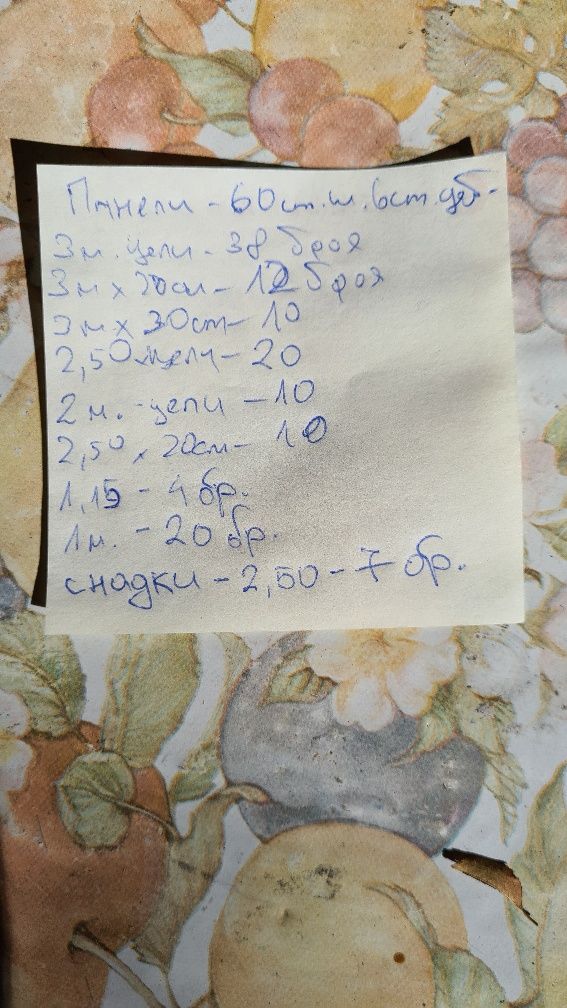 Панели - 60см.ш. 6см.деб.
3м. цели - 38 броя
3м х 20см - 12 броя
3м х 30см - 10
2,50 цели - 20
2м. - цели - 10
2,50 х 20см - 10
1,15 - 4 бр.
1м. - 20 бр.
снадки - 2,50 - 7 бр.